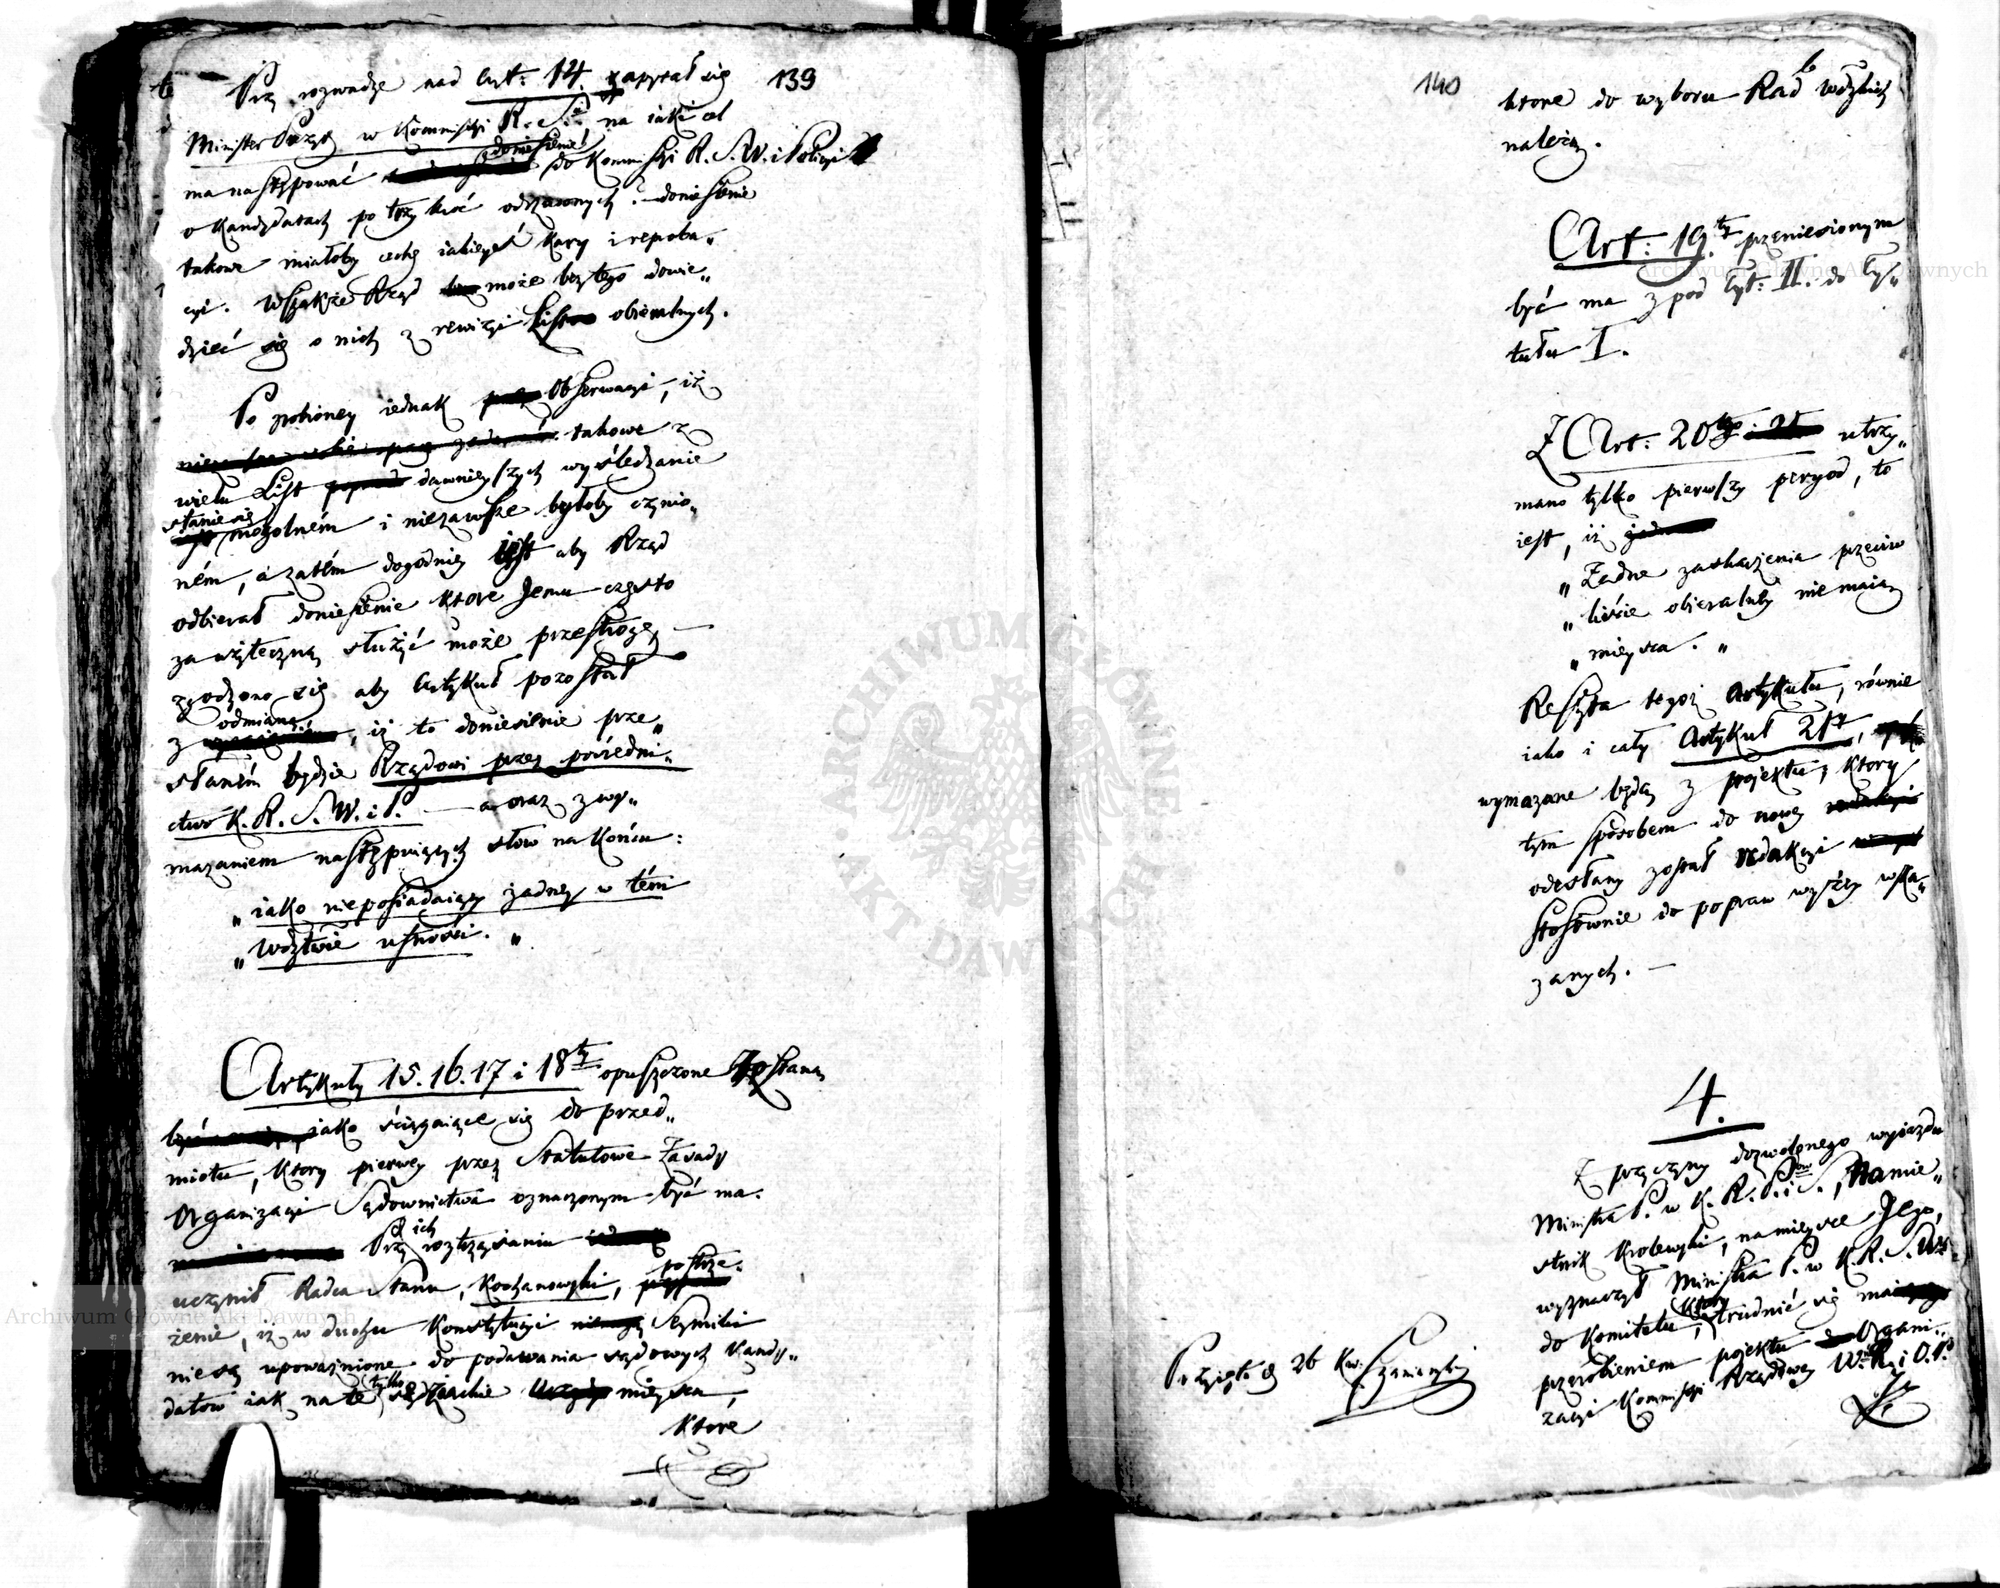 139
Przy rozwadze nad Art: 14. zapytał się
Minister Prezyd w Kommissyi R. S. na iaki cel
ma następować doniesienie do Kommissyi R. S. W. i Policyi
o Kandydatach po trzykroć odrzuconych? doniesienie
takowe miałoby cechę iakieyś kary i reproba„
cyi. Wszakże Rząd może bez tego dowie„
dzieć się o nich z rewizyi List obieralnych.
Po zrobioney iednak Obserwacyi, iż
takowe z
wielu List dawnieyszych wyśledzanie
stanie się mozolném i niezawsze byłoby czynio„
ném, a zatém dogodniey iest aby Rząd
odbierał doniesienie które Jemu często
za użyteczną służyć może przestrogę, —
zgodzono się aby Artykuł pozostał
z odmianą, iż to doniesienie prze„
słaném będzie Rządowi przez pośredni„
ctwo K. R. S. W. i P. — a oraz z wy„
mazaniem następuiących słów na końcu:
„ iako nieposiadaiący żadney w tém
„ Wdztwie ufności. „
Artykuły 15. 16. 17 i 18ty opuszczone zostaną
iako ściągaiące się do przed„
miotu, który pierwey przez Statutowe Zasady
Organizacyi Sądownictwa oznaczonym być ma.
Przy ich roztrząsaniu
uczynił Radca Stanu, Kochanowski, postrze„
żenie, iż w duchu Konstytucyi Seymiki
nie są upoważnione do podawania sądowych Kandy„
datów iak na te tylko sędziackie mieysca,
które
140
które do wyboru Rad Wdzkich
należą.
Art: 19.ty przeniesionym
być ma z pod Tyt: II. do Ty„
tułu I.
Z Art: 20go utrzy„
mano tylko pierwszy peryod, to
iest, iż
„ Żadne zaskarżenia przeciw
„ liście obieralney nie maią
„ mieysca. „
Reszta tegoż Artykułu, równie
iako i cały Artykuł 21szy,
wymazane będą z projektu, który
tym sposobem do nowey
odesłany został redakcyi
stosownie do popraw wyżey wska„
zanych. —
4.
Z przyczyny dozwolonego wyjazdu
Ministra P. w K. R. P. i S., Namie„
stnik Krolewski, na mieysce Jego,
wyznaczył Ministra P. w K. R. S. W.
do Komitetu, który trudnić się ma
przerobieniem projektu Organi„
zacyi Kommissyi Rządowey W. R. i O. P.
Przyięto d 26 Kw.